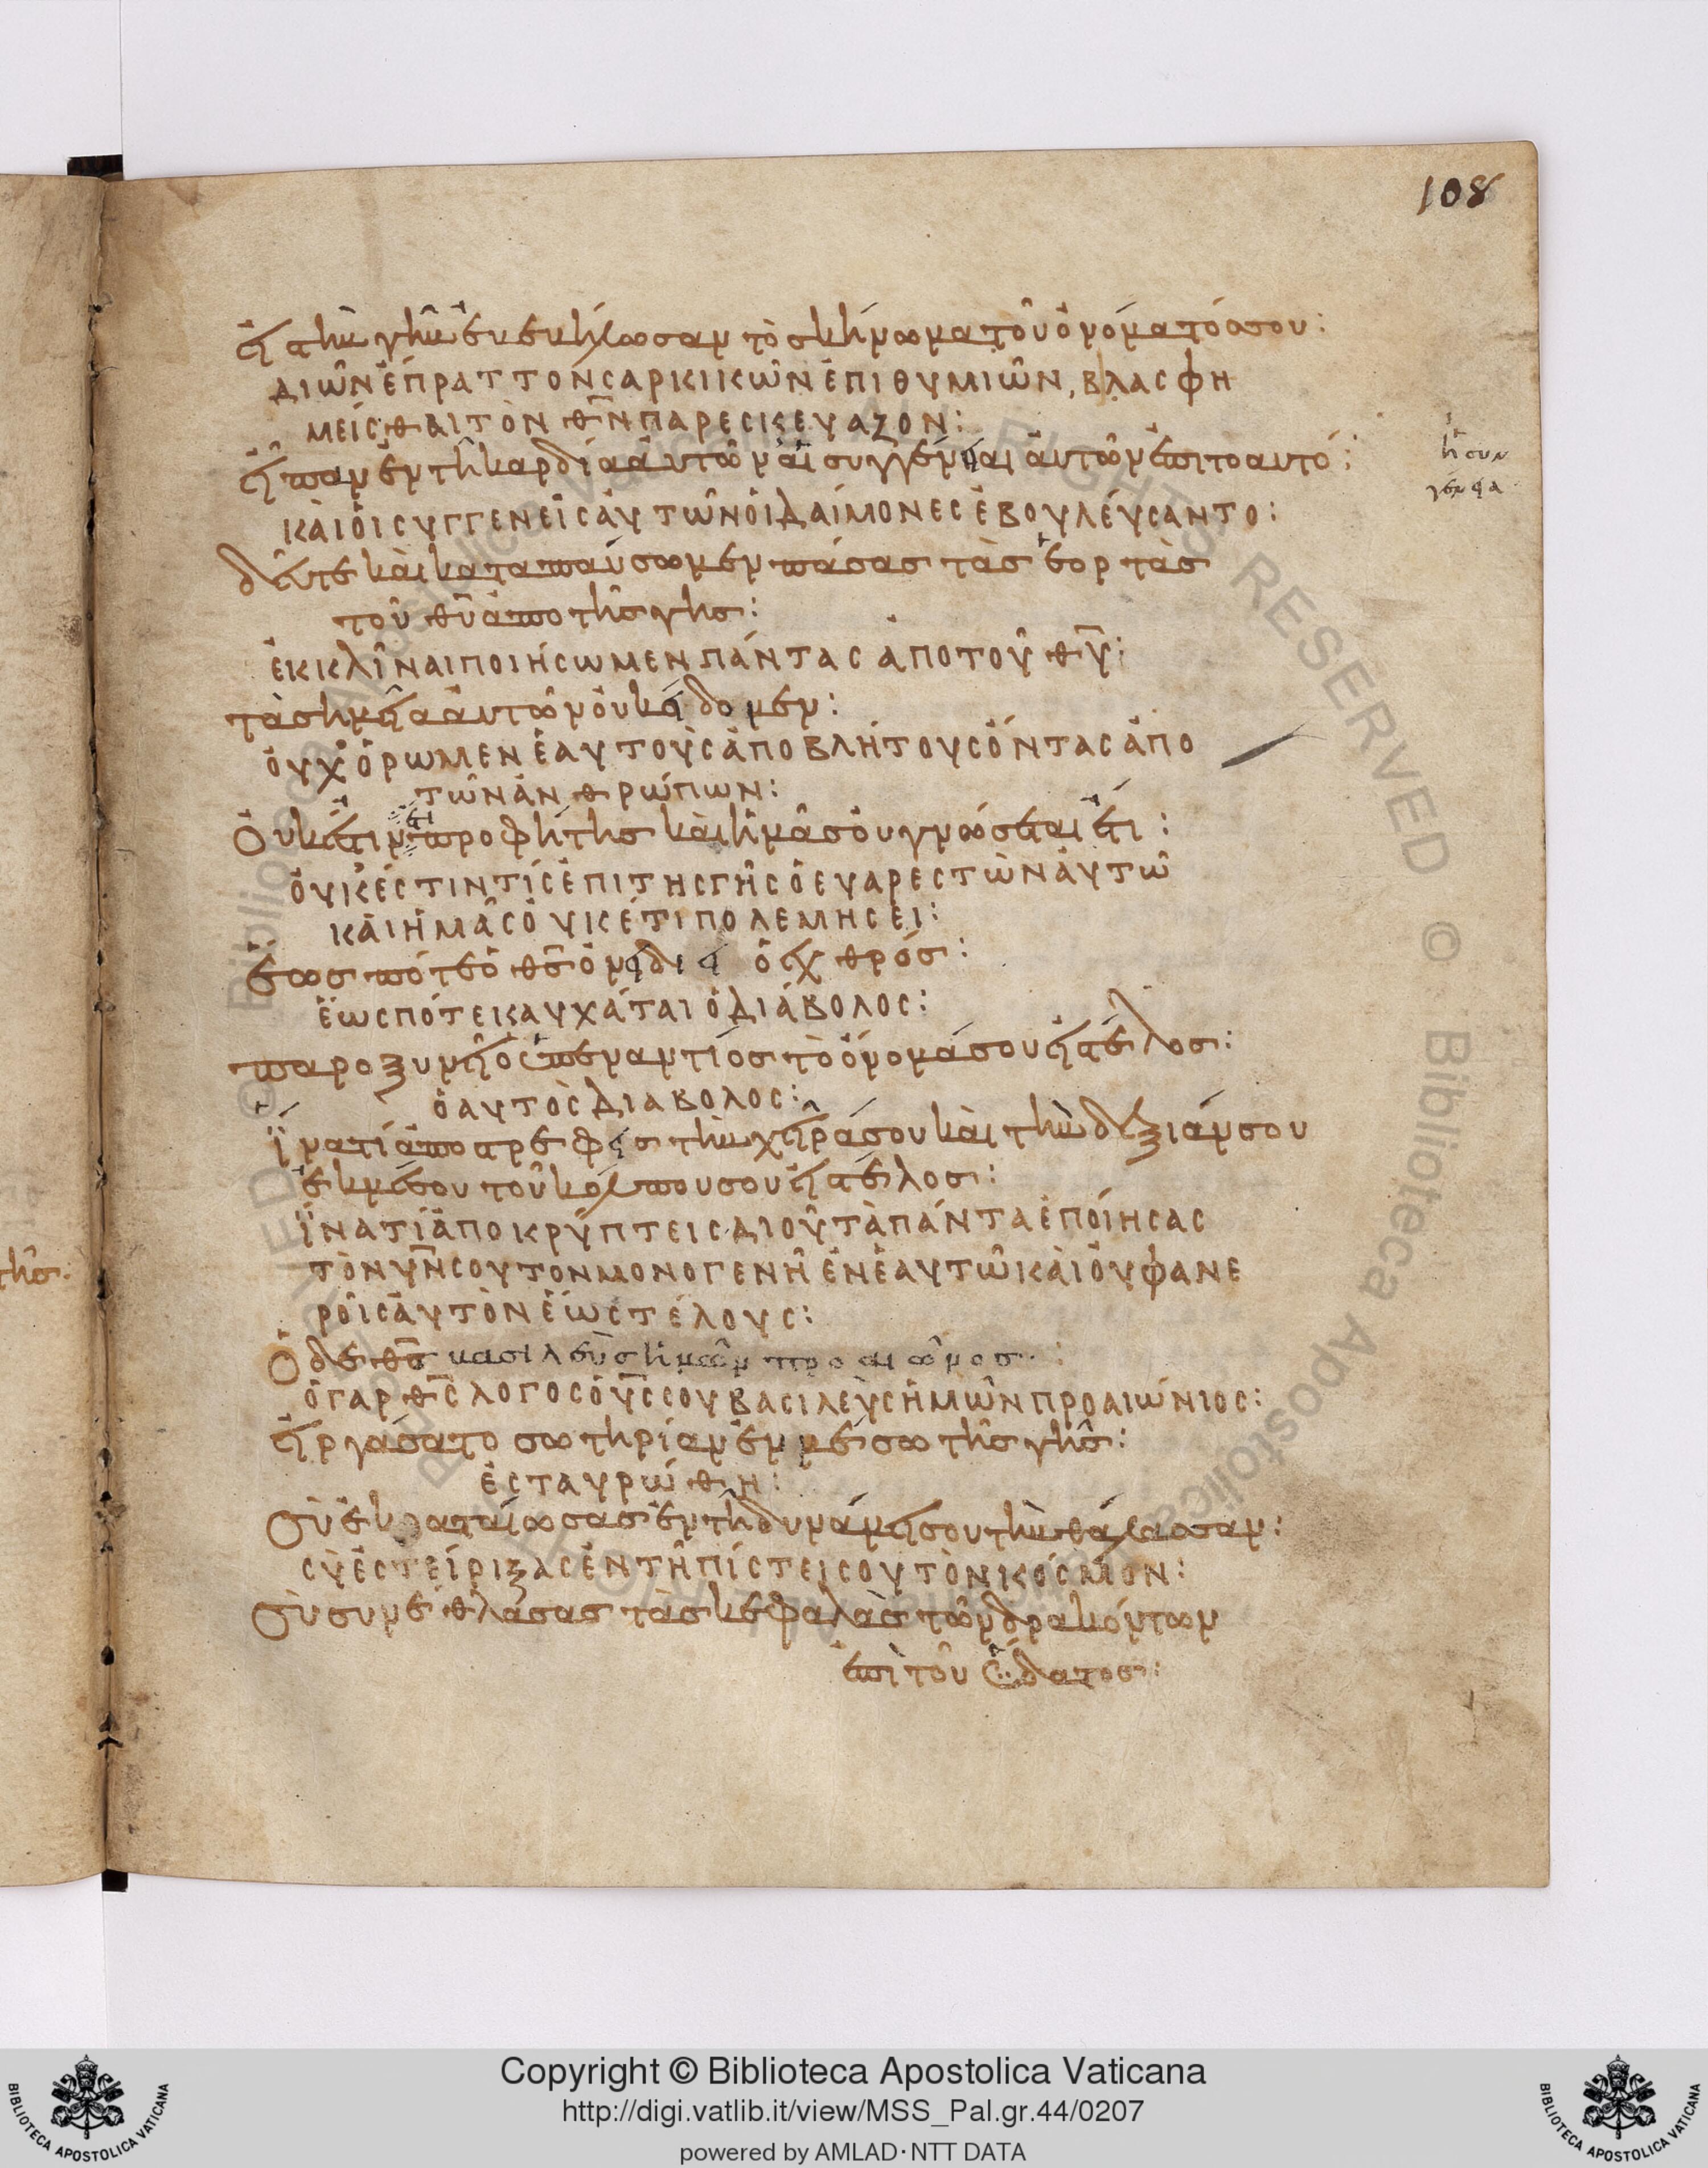 108
εἰς τὴν γῆν ἐβεβήλωσαν τὸ σκήνωμα τοῦ ὀνόματόσ σου:
ΔΙ ὯΝ ἘΠΡΑΤΤΟΝ ΣΑΡΚΙΚῶΝ ἘΠΙΘΥΜΙῶΝ, ΒΛΑΣΦΗ
ΜΕῖΣΘΑΙ ΤῸΝ Θ̅Ν̅ ΠΑΡΕΣΚΕΥΑΖΟΝ:
εἶπαν ἐν τῆ καρδία αὐτῶν αἱ συγγένειαι αὐτῶν ἐπιτοαυτό:
ἡ συν
γένεια
ΚΑῚ ΟἹ ΣΥΓΓΕΝΕῖΣ ΑὐΤῶΝ ΟἹ ΔΑΊΜΟΝΕΣ ἘΒΟΥΛΕΎΣΑΝΤΟ:
δεῦτε καὶ καταπαύσωμεν πάσας τὰσ ἑορτὰσ
τοῦ θ̅υ̅ ἀπὸ τῆσ γῆσ:
ἘΚΚΛῖΝΑΙ ΠΟΙΉΣΩΜΕΝ ΠΆΝΤΑΣ ἈΠΟ ΤΟῦ Θ̅Υ̅:
τὰ σημεῖα αὐτῶν οὐκ εἴδομεν:
ΟὐΧ ὉΡῶΜΕΝ ἙΑΥΤΟῪΣ ἈΠΟΒΛΉΤΟΥΣ ὌΝΤΑΣ ἈΠΟ
ΤῶΝ ἈΝΘΡΏΠΩΝ:
Οὐκ ἔστιν ἔτι προφήτησ καὶ ἡμᾶσ οὐ γνώσεται ἔτι:
ΟὐΚ ἜΣΤΙΝ ΤΊΣ ἘΠΙ ΤΗΣ ΓῆΣ Ὁ ΕΥΑΡΕΣΤῶΝ ΑὐΤῶ
ΚΑῚ ἩΜᾶΣ ΟὐΚΈΤΙ ΠΟΛΕΜΗΣΕΙ:
ἕωσ πότε ὁ θ̅σ̅ ὀνειδιεῖ ὁ ἐχθρόσ:
ἝΩΣ ΠΌΤΕ ΚΑΥΧᾶΤΑΙ Ὁ ΔΙΆΒΟΛΟΣ:
παροξυνεῖ ὁ ὑπεναντίοσ τὸ ὄνομά σου εἰσ τέλοσ:
Ὁ ΑΥΤῸΣ ΔΙΑΒΟΛΟΣ:
ἵνατί ἀποστρέφεισ τὴν χεῖρά σου καὶ τὴν δεξιάν σου
ἐκ μέσου τοῦ κόλπου σου εἰσ τέλοσ:
ἽΝΑ ΤΊ ἈΠΟΚΡΎΠΤΕΙΣ ΔΙ Οὗ ΤᾺ ΠΆΝΤΑ ἘΠΟΊΗΣΑΣ
ΤῸΝ Υ̅Ν̅ ΣΟΥ ΤΟΝ ΜΟΝΟΓΕΝῆ ἘΝ ἙΑΥΤῶ ΚΑῚ Οὐ ΦΑΝΕ
ΡΟῖΣ ΑὐΤῸΝ ἝΩΣ ΤΈΛΟΥΣ:
Ὁ δὲ θ̅σ̅ βασιλεὺσ ἡμῶν προ αἰῶνοσ:
Ὁ ΓΑΡ Θ̅Σ̅ ΛΟΓΟΣ Ὁ Υ̅Σ̅ ΣΟΥ ΒΑΣΙΛΕῪΣ ἩΜῶΝ ΠΡΟΑΙΏΝΙΟΣ:
εἰργάσατο σωτηρίαν ἐν μέσω τῆσ γῆσ:
ἘΣΤΑΥΡΏΘΗ:
Σὺ ἐκραταίωσασ ἐν τῆ δυνάμει σου τὴν θάλασσαν:
ΣῪ ἘΣΤΕΊΡΙΞΑΣ ἘΝ Τῆ ΠΊΣΤΕΙ ΣΟΥ ΤῸΝ ΚΟΣΜΟΝ:
Σὺ συνέθλασας τὰσ κεφαλὰσ τῶν δρακόντων
ἐπὶ τοῦ ὕδατοσ:
τῆσ:
Copyright © Biblioteca Apostolica Vaticana
http://digi.vatlib.it/view/MSS_Pal.gr.44/0207
powered by AMLAD·NTT DATA
BIBLIOTECA APOSTOLICA VATICANA
BIBLIOTECA APOSTOLICA VATICANA